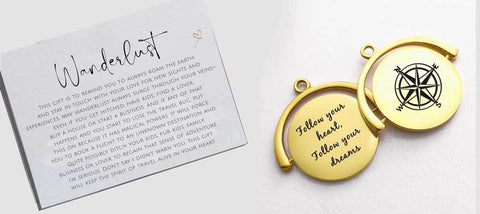 Wanderlust
THIS GIFT IS TO REMIND YOU TO ALWAYS ROAM THE EARTH
AND STAY IN TOUCH WITH YOUR LOVE FOR NEW SIGHTS AND
EXPERIENCES. MAY WANDERLUST ALWAYS SURGE THROUGH YOUR VEINS–
EVEN IF YOU GET HITCHED, HAVE KIDS, FIND A LOVER,
BUY A HOUSE OR START A BUSINESS. AND IF ANY OF THAT
HAPPENS AND YOU START TO LOSE THE TRAVEL BUG, PUT
THIS ON BECAUSE IT HAS MAGICAL POWERS. IT WILL FORCE
YOU TO BOOK A FLIGHT TO AN UNKNOWN DESTINATION AND
QUITE POSSIBLY DITCH YOUR KIDS, FUR KIDS, FAMILY,
BUSINESS OR LOVER TO REGAIN THAT SENSE OF ADVENTURE.
I'M SERIOUS, DON'T SAY I DIDN'T WARN YOU. THIS GIFT
WILL KEEP THE SPIRIT OF TRAVEL ALIVE IN YOUR HEART.
Follow your
heart,
Follow your
dreams
N
E
S
W